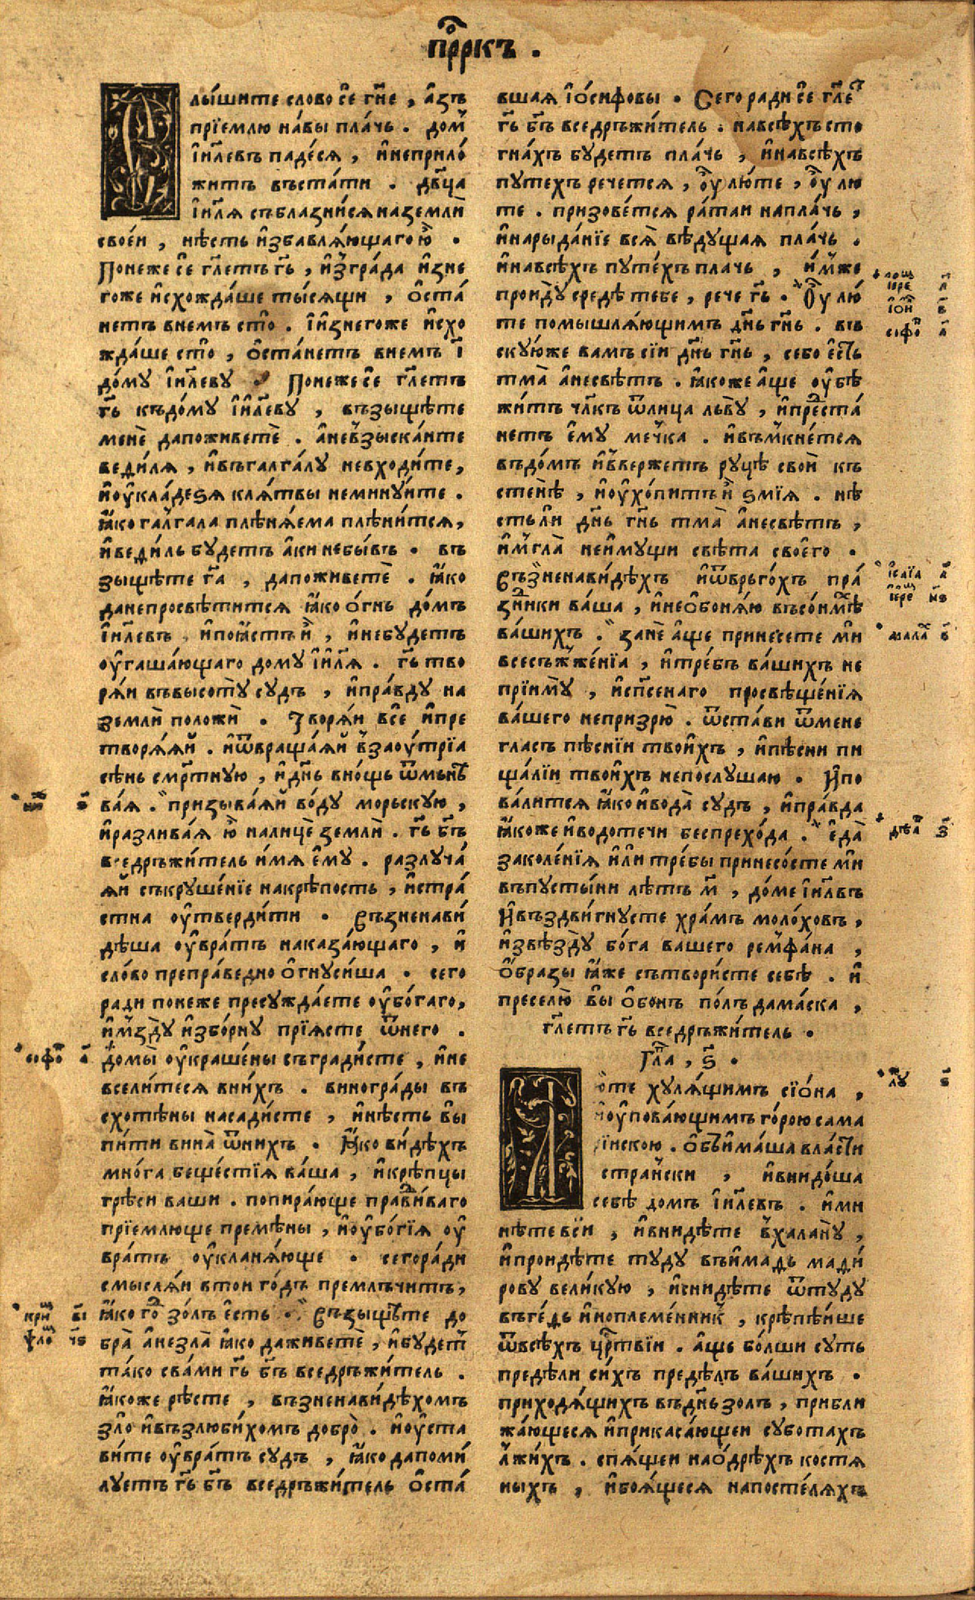 пррⷪкъ .
Слы́шите слово сїе гн҃е , а҆́зъ
прїемлю на́вы пла́чь . до́мъ
і҆и҃левъ паде́ся , и҆неприло́
житъ въста́ти . дв҃ца
і҆и҃ля съблазни́ся наземли̑
свое́и , нѣ́сть и҆збавля́ющаго ю҆̀ .
Понеже сїе гл҃етъ гь҃ , и҆згра́да и҆зне
гоже и҆схожда́ше ты́сящи , ѻ҆ста́
нетъ внемъ сто̀ . І҆изнегоже и҆схо
жда́ше сто̀ , ѻ҆ста́нетъ внемъ і҃
до́му і҆и҃леву . Понеже сїе гл҃етъ
гь҃ къдо́му і҆и҃леву , възыщѣте
менѐ дапоживетѐ . а҆невзыска́ите
веди́ля , и҆въгалга́лу невходи́те,
и҆оу҆кла́дезя кля́твы немину́ите .
ꙗ҆́ко га́лгала плѣня́ема плѣни́тся,
и҆веди́ль бу́детъ а҆́ки небы́въ . въ
зыщѣте гь҃а , дапоживетѐ . ꙗ҆́ко
данепросвѣти́тся ꙗ҆́ко о҆́гнь до́мъ
і҆и҃левъ , и҆поꙗ҆́стъ и҆̀ , и҆небу́детъ
оу҆гаша́ющаго дому і҆и҃ля . гь҃ тво
ря́и въвысоту̀ су́дъ , и҆пра́вду на
землѝ положѝ . Творя́и всѐ и҆пре
творя́яй . и҆ѿвраща́яй взаоу́трїа
сѣ́нь смр҃тную , и҆дн҃ь вно́щь ѿмьнѣ
ва́я . призыва́яй во́ду морьску́ю ,
и҆разлива́я ю҆̀ налицѐ землѝ . гь҃ бг҃ъ
вседръжи́тель и҆́мя е҆му̀ . разлуча́
яй съкруше́нїе накрѣ́пость , и҆стра́
стна оу҆тверди́ти . Възненави́
дѣша оу҆вра́тъ наказа́ющаго , и҆
сло́во препра́ведно ѻ҆гнуси́ша . сего
ради понеже пресужда́ете оу҆бо́гаго,
и҆мзду̀ и҆збо́рну прїя́сте ѿнего .
до́мы̀ оу҆краше́ны съгради́сте , и҆не
всели́теся вни́хъ . виногра́ды въ
схотѣ́ны насади́сте , и҆нѣ́сть вы̀
пи́ти вина̀ ѿни́хъ . Ꙗ҆́ко ви́дѣхъ
мно́га беще́стїя ва́ша , и҆крѣ́пцы
грѣси ваши . попира́юще пра́виваго
прїемлюще премѣ́ны , и҆оу҆бо́гїя оу҆
вра́тъ оу҆кланя́юще . сегора́ди
смысля́и втои го́дъ премлъчи́тъ,
ꙗ҆́ко го́дъ зо́лъ е҆́сть . Възыщѣ́те до
бра̀ а҆незла̀ ꙗ҆́ко даживетѐ , и҆бу́детъ
та́ко сва́ми гь҃ бг҃ъ вседръжи́тель .
ꙗ҆́коже рѣ́сте , възненави́дѣхомъ
зло̀ и҆възлюби́хомъ добро̀ . и҆оу҆ста
ви́те оу҆вра́тъ су́дъ , ꙗ҆́ко дапоми́
луетъ гь҃ бг҃ъ вседръжи́тель ѻ҆ста́
вшая і҆о́сифовы . Сего ра́ди сїе гл҃етъ
гь҃ бг҃ъ вседръжи́тель : навсѣ́хъ сто
гна́хъ бу́детъ пла́чь , и҆навсѣ́хъ
путе́хъ рече́тся , оу҆̑ лю́те , оу҆̑ лю
те . призове́тся ра́таи напла́чь ,
и҆нарыда́нїе вся̀ вѣ́дущая пла́чь .
и҆навсѣ́хъ путе́хъ пла́чь , и҆́мже
проиду̀ средѣ̀ тебе , рече гь҃ . Оу҆̑ лю́
те помышля́ющимъ дн҃ь гн҃ь . въ
ску́юже вамъ сїи дн҃ь гн҃ь , себо е҆́сть
тма̀ а҆несвѣ́тъ . ꙗ҆́коже а҆́ще оу҆бѣ
жи́тъ чл҃къ ѿлица льву̀ , и҆преста́
нетъ е҆му ме́чка . и҆въмкне́тся
въдо́мъ и҆вве́ржетъ ру́цѣ своѝ къ
стенѣ̀ , и҆оу҆хо́питъ и҆̀ ѕмі́я . нѣ́
стьли дн҃ь гн҃ь тма̀ а҆несвѣ́тъ ,
и҆мгла̀ неи҆му́щи свѣ́та своего̀ .
Възненави́дѣхъ и҆ѿврьго́хъ пра́
здники ва́ша , и҆неѻ҆боня́ю въсо́нмѣ
ва́шихъ . занѐ а҆́ще принесе́те мѝ
всесъжже́нїа , и҆тре́бъ ва́шихъ не
прїиму̀ , и҆сп҃сенаго просвѣще́нїя
ва́шего непризрю̀ . ѿста́ви ѿмене
гла́съ пѣ́снїи твои́хъ , и҆пѣ́сни пи
ща́лїи твои́хъ непослу́шаю . И҆по
ва́лится ꙗ҆́ко и҆вода̀ су́дъ , и҆пра́вда
ꙗ҆́коже и҆водоте́чи беспрехо́да . е҆да̀
заколе́нїя и҆́ли тре́бы принесо́сте мѝ
въпусты́ни лѣ́тъ м҃ , до́ме і҆и҃левъ
И҆въздви́гнусте хра́мъ моло́ховъ ,
и҆звѣзду̀ бо́га вашего ремфа́на ,
ѻ҆́бразы ꙗ҆́же сътвори́сте себѣ̀ . и҆
преселю̀ вы̀ ѻ҆бонъ по́лъ дама́ска ,
гл҃етъ гь҃ вседръжи́тель .
Гла҃ , ѕ҃ .
Лю́те хуля́щимъ сїо́на ,
и҆оу҆пова́ющимъ го́рою сама
рі́искою . ѻ҆бъи́маша вла́сти
стра́нски , и҆внидо́ша
себѣ̀ домъ і҆и҃левъ . и҆ми
нѣ́те всѝ , и҆внидѣ́те вхала́ну ,
и҆проидѣ́те туду въи҆ма́дь мади́
рову вели́кую , и҆снидѣ́те ѿту́ду
въге́дь и҆ноплеме́нникъ , крѣплѣ́ише
ѿвсѣ́хъ цр҃твїи . а҆́ще бо́лши суть
предѣ́ли си́хъ предѣ́лъ ва́шихъ .
приходя́щихъ въдн҃ь золъ , прибли
жа́ющеся и҆прикаса́ющеи субо́тахъ
лжи́хъ . спя́щеи наѻ҆дрѣ́хъ костя
ны́хъ , и҆боя́щеся напосте́ляхъ